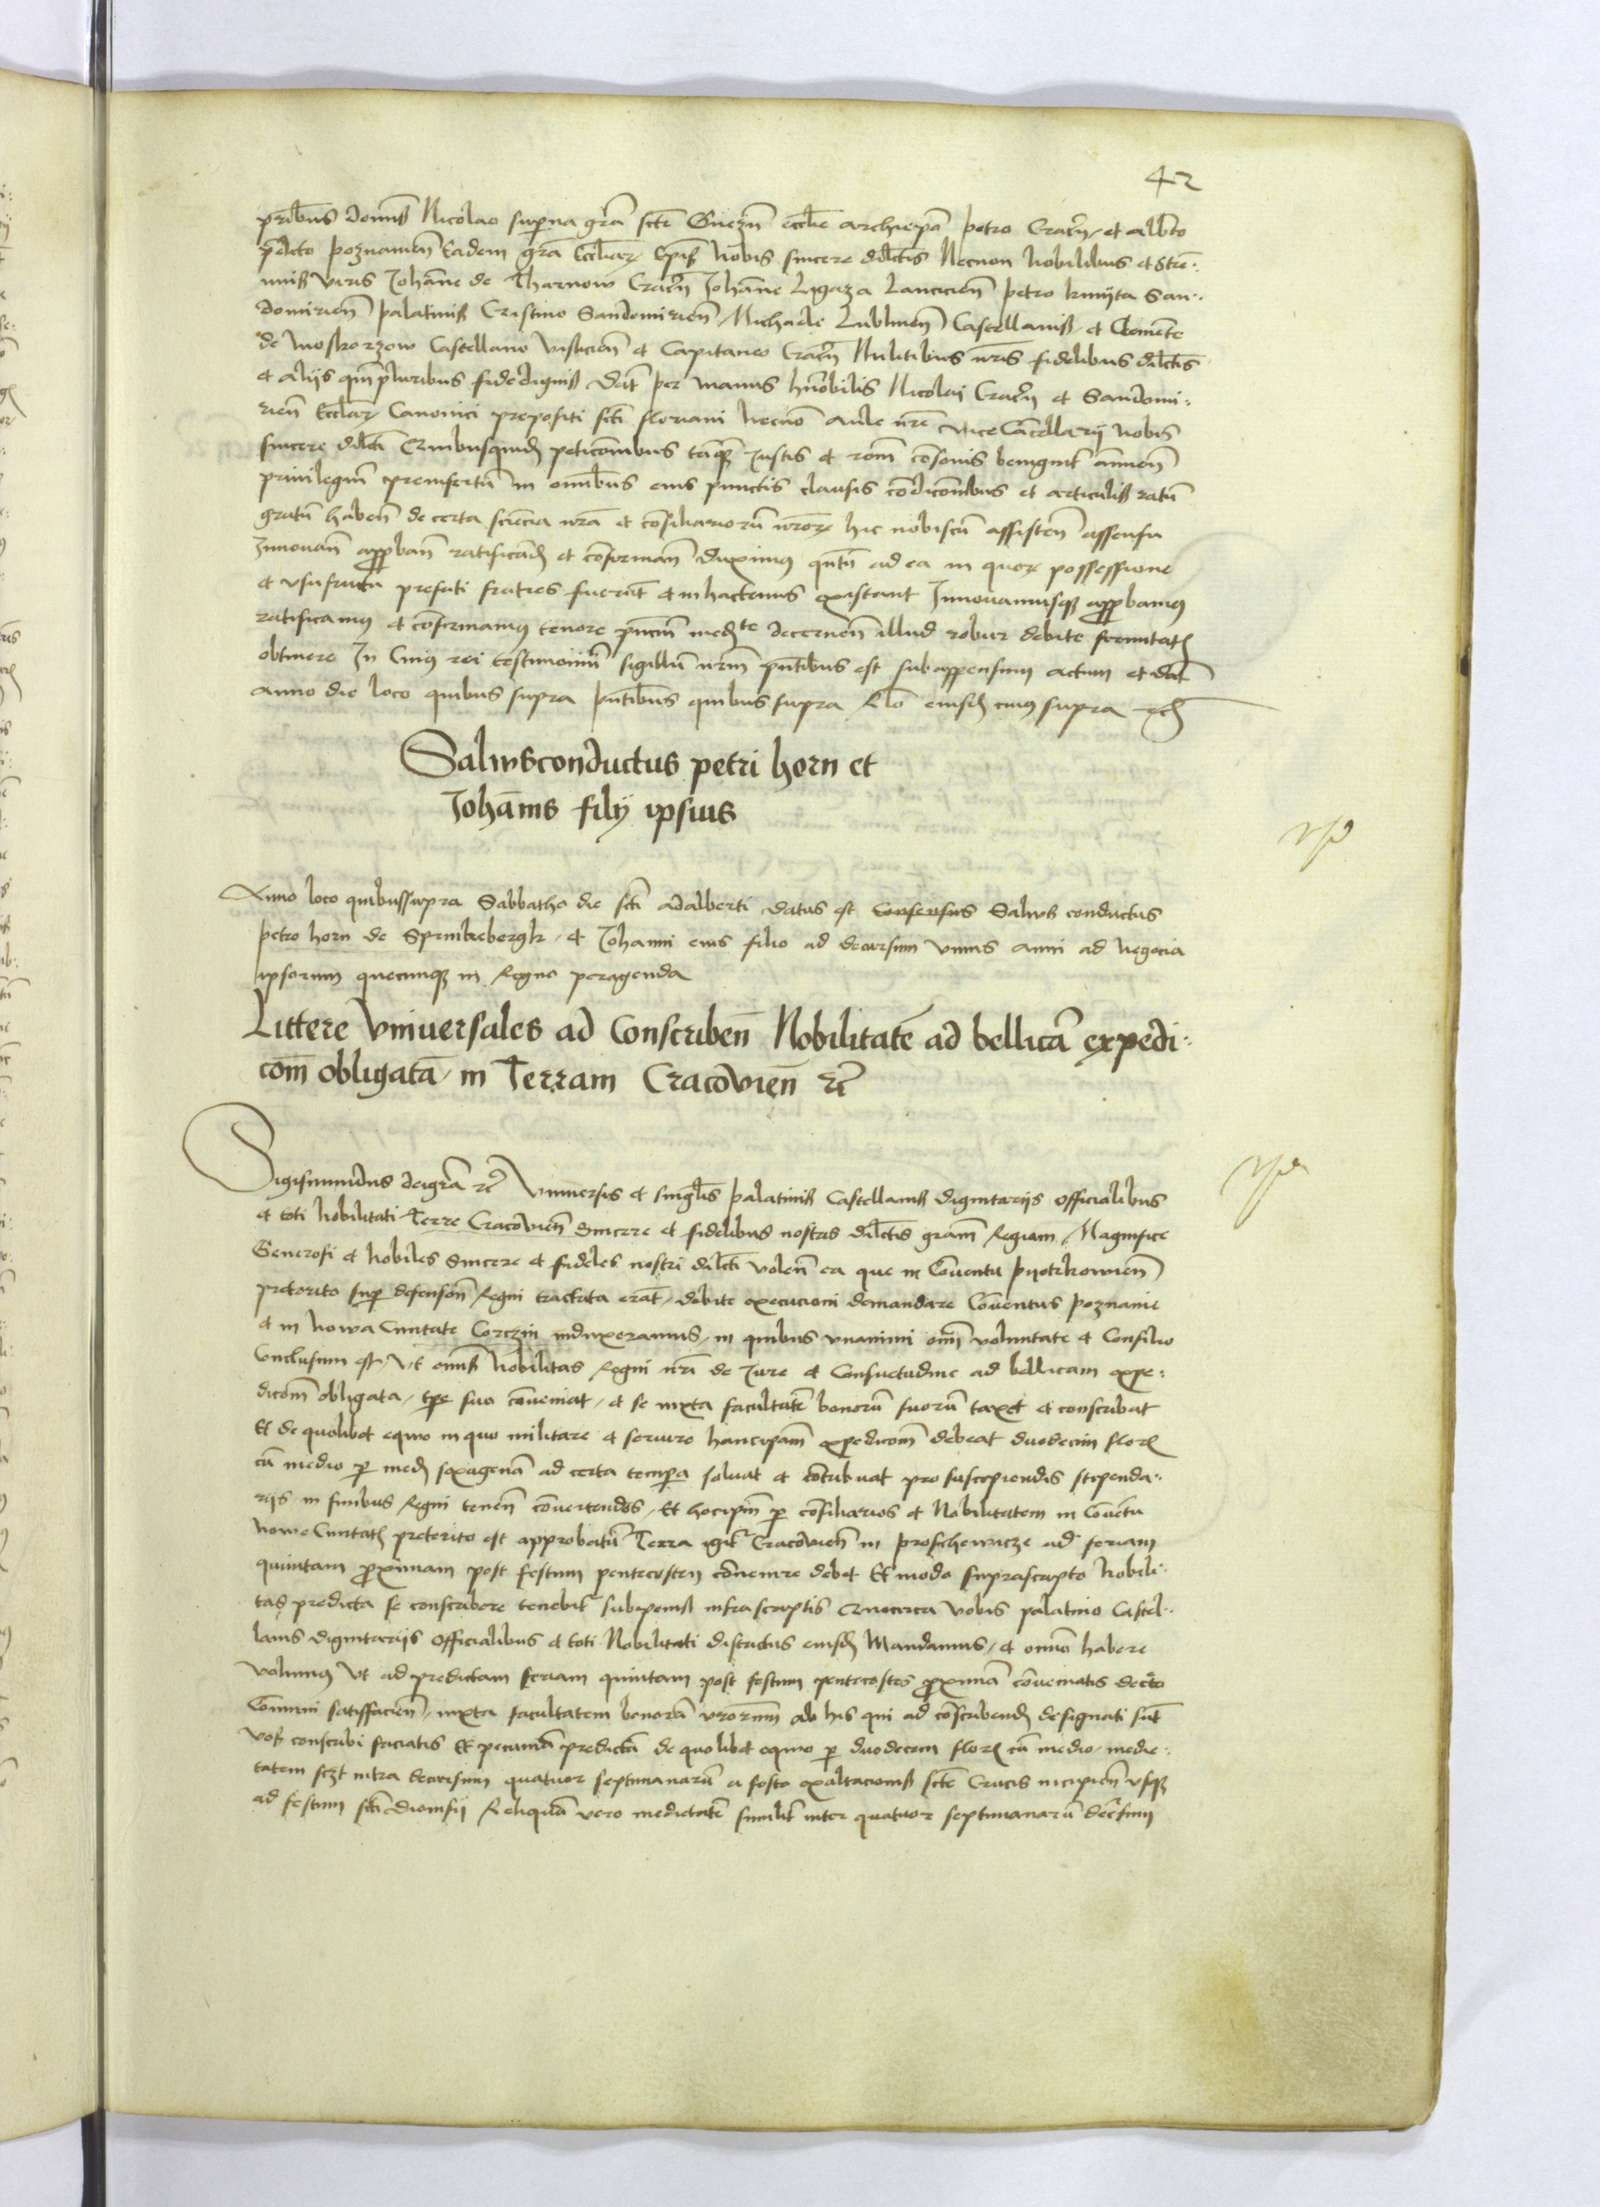 42
pribus domnis Nicolao superna gra scte Gnezn ecclie archiepo petro Cracn et Alberto
predicto poznamen Eadem gra Eccliar Epis nobis sincere dilctis Necnon nobilibus et Stre:
nuis viris Johanne de Tharnow Cracn Johanne Ligaza Lancicien petro kmyta San:
domirien palatinis Cristino Sandomirien Michaele Lublinen Castellanis et Clemente
de Moskorzow Castellano vislicien et Capitaneo Cracn Militibus nris fidelibus dilctis
et aliis qm pluribus fidedignis Dat per manus honorabilis Nicolai Cracn et Sandomi:
rien Eccliar Canonici prepositi scti floriani necno Aule nre Vice Cancellarij nobis
sincere dilcti Quibusquidem peticonibus tamquam Justis et romi consonis benignit annuen
privilegium preinsertum in omnibus eius punctis clausis condiconibus et articulis ratum
gratum haben de certa sciencia nra et consiliariorum nrorum hic nobiscum assisten assensu
Innovan approban ratificand et conforman duximus qntum ad ea in quorum possessione
et usufructu prefati fratres fuerunt et in hactenus existant Innovamusque approbamus
ratificamus et confirmamus tenore pncium medte decernen illud robur debite firmitatis
obtinere In Cuius rei testimonium sigillum nrm pntibus est subappensum actum et dat
anno die loco quibus supra pntibus quibus supra Rlo eiusdem cuius supra etc
Salvusconductus petri horn et
Johannis filij ipsius
Anno loco quibussupra Sabbatho die scti Adalberti datus est Consensus Salvus conductus
petro horn de Sprinkebergk et Johanni eius filio ad decursum unius anni ad negocia
ipsorum quecunque in Regno peragenda
Littere Universales ad Conscriben Nobilitate ad bellica expedi:
com obligata in Terram Cracovien etc
Sigismundus dei gra etc Universis et singulis palatinis Castellanis dignitarijs officialibus
et toti Nobilitati Terre Cracovien Sincere et fidelibus nostris dilctis gram Regiam Magnifice
Generosi et Nobiles Sincere et fideles nostri dilcti volen ea que in Conventu piotrkowien
preterito super defension Regni tractata erat debite execucioni demandare Conventus poznanie
et in Nowa Civitate Corczin indixeramus in quibus unanimi omni voluntate et Consilio
Conclusum est Ut omnis Nobilitas Regni nri de Jure et Consuetudine ad bellicam expe:
dicom obligata tpe suo conveniat et se iuxta facultate bonoru suoru taxet et conscribat
Et de quolibet equo in quo militare et servire hancipam expedicom debeat duodecim flor
cu medio per med sexagena ad certa tempora solvat et contribuat pro suscipiendis stipenda:
rijs in finibus Regni tenen convertendos Et hocipm per consiliarios et Nobilitatem in Conventu
Nowe Civitatis preterito est approbatu Terra igitur Cracovien in proschewicze ad feriam
quintam proximam post festum pentecosten convenire debet Et modo suprascripto Nobili:
tas predicta se conscribere tenebitur subpenis infrascriptis Quocirca Vobis palatino Castel:
lanis dignitarijs officialibus et toti Nobilitati districtus eiusdem Mandamus et omnino habere
Volumus Ut ad predictam feriam quintam post festum pentecostes proxima conveniatis decreto
Communi satisfacien iuxta facultatem bonoru vrorum ab his qui ad conscribend designati sunt
vos conscribi faciatis Et pecunia predicta de quolibet equo per duodecem flor cu medio medie:
tatem sczt intra decursum quatuor septimanaru a festo exaltacionis scte Crucis incipien usque
ad festum scti dionisij Reliqua vero medietate similiter inter quatuor septimanaru decursum